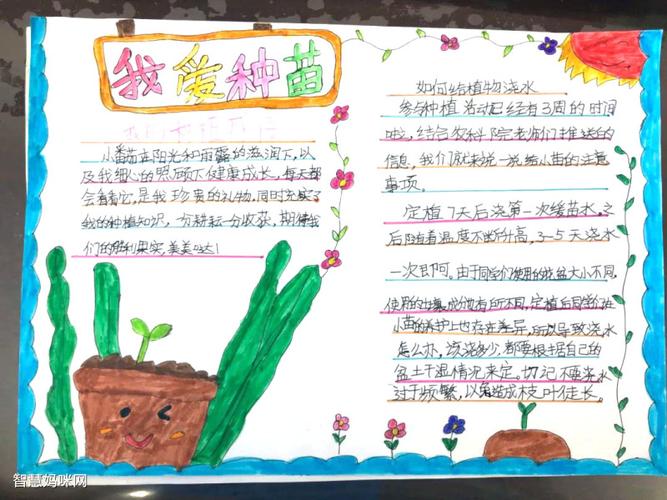 我爱种苗
小番茄在阳光和雨露的滋润下，以
及我细心的照顾下健康成长，每天都
会看看它，是我珍贵的礼物，同时充实了
我的种植知识，一分耕耘一分收获，期待我
们的胜利果实，美美哒！
如何给植物浇水
参与种植活动已经有3周的时间
啦，结合农科院老师们推送的
信息，我们就来说一说给小苗的注意
事项。
定植7天后浇第一次缓苗水，之
后随着温度不断升高，3-5天浇水
一次即可。由于同学们使用的花盆大小不同，
使用的土壤成份有所不同，定植后同学们在
小苗的养护上也存在差异，所以导致浇水
怎么办，该浇多少，都要根据自己的
盆土干湿情况来定，切记不要浇水
过于频繁，以免造成枝叶徒长。
智慧妈咪网